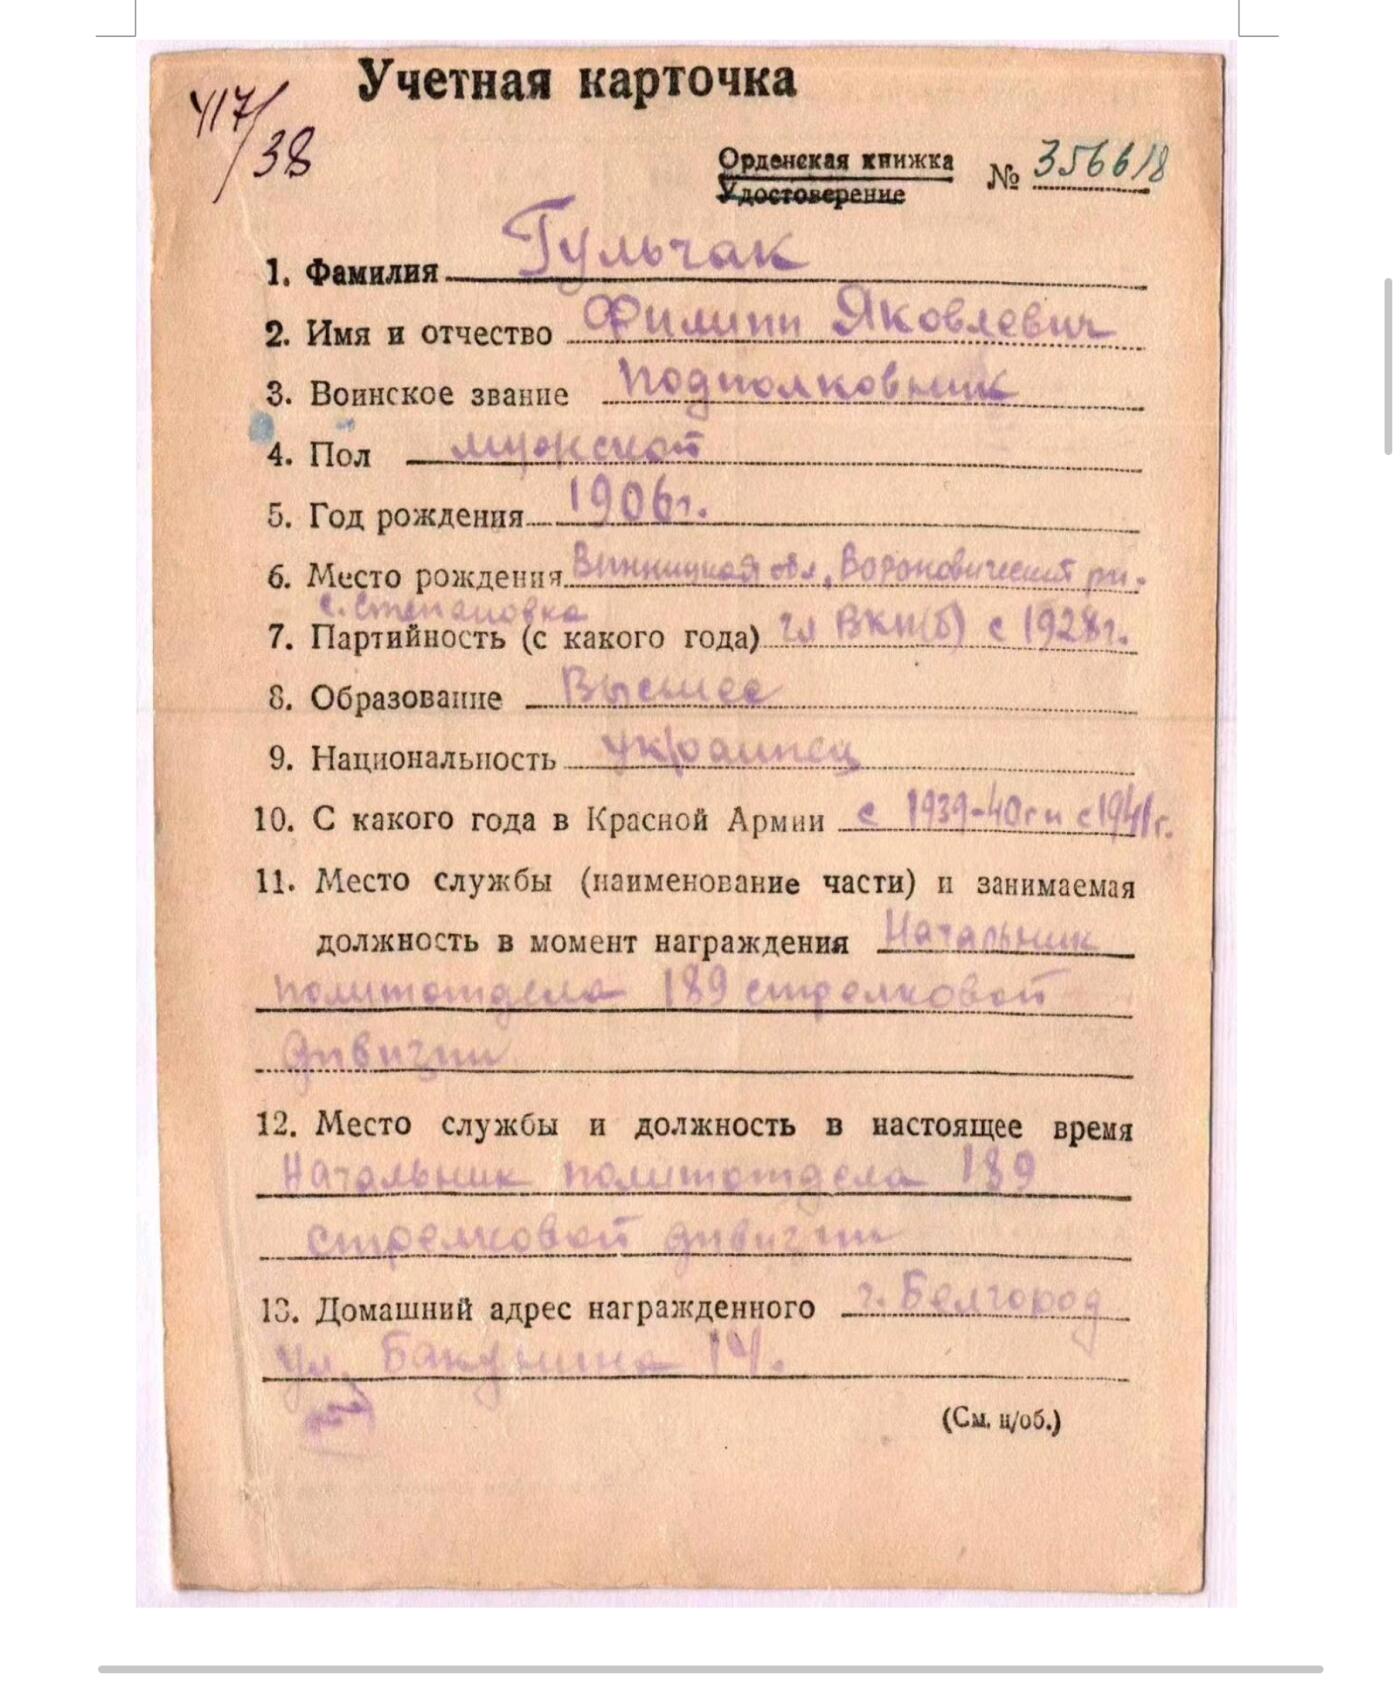 417/38
Учетная карточка
Орденская книжка
Удостоверение
№ 356618
1. Фамилия Гульчак
2. Имя и отчество Филипп Яковлевич
3. Воинское звание подполковник
4. Пол мужской
5. Год рождения 1906г.
6. Место рождения Винницкая обл., Вороновический рн.
с. Степановка
7. Партийность (с какого года) чл ВКП(б) с 1928г.
8. Образование Высшее
9. Национальность украинец
10. С какого года в Красной Армии с 1939-40г и с 1941г.
11. Место службы (наименование части) и занимаемая
должность в момент награждения Начальник
политотдела 189 стрелковой
дивизии
12. Место службы и должность в настоящее время
Начальник политотдела 189
стрелковой дивизии
13. Домашний адрес награжденного г. Белгород
ул. Бакунина 14.
(См. н/об.)